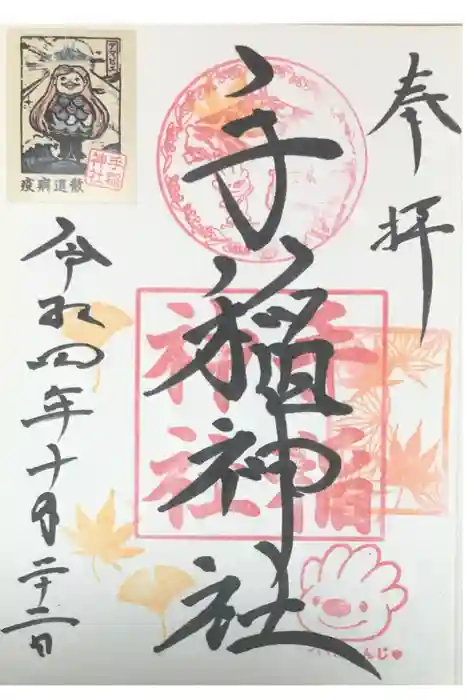 奉拝
手稲神社
令和四年十月二十二日
手稲
神社
アマビエ
疫病退散
手稲
神社
んじ